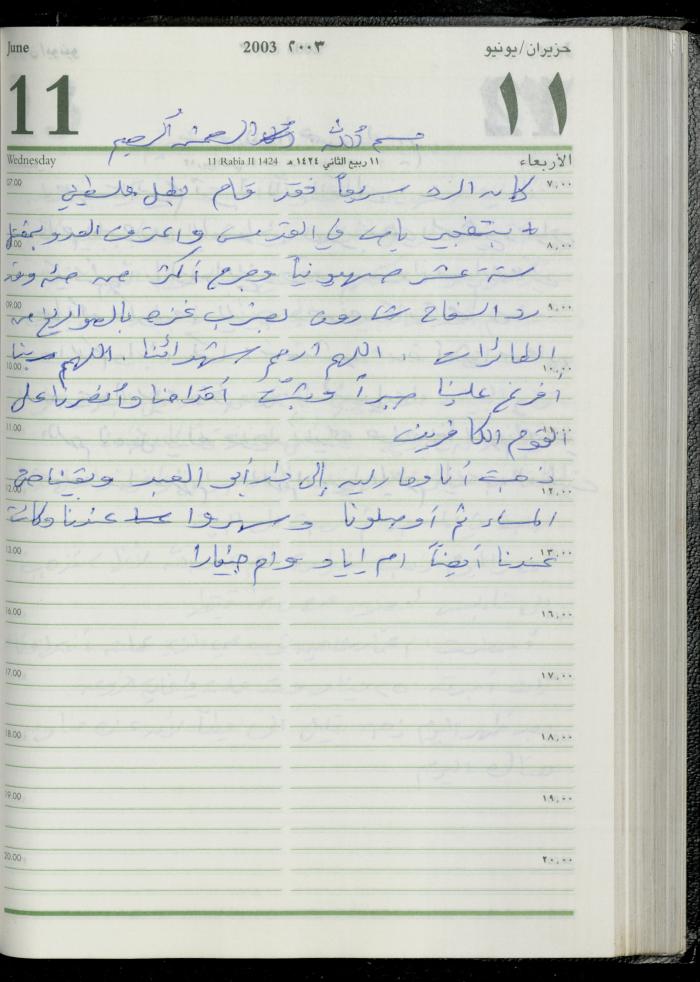 June 2003 ٢٠٠٣ حزيران/يونيو
11 ١١
بسم الله الرحمن الرحيم
Wednesday 11 Rabia II 1424 ١١ ربيع الثاني ١٤٢٤ هـ الأربعاء
07.00 ٧,٠٠
كان الرد سريعاً فقد قام بطل فلسطيني
بتفجير باص في القدس واعترف العدو بمقتل
8.00 ٨,٠٠
ستة عشر صهيونياً وجرح أكثر من مئة وقد
09.00 ٩,٠٠
رد السفاح شارون بضرب غزه بالصواريخ من
الطائرات . اللهم ارحم شهدائنا . اللهم ربنا
10.00 ١٠,٠٠
أفرغ علينا صبراً وثبّت أقدامنا وأنصرنا على
11.00
القوم الكافرين
ذهبت أنا وماريه إلى دار أبو العبد وبقينا حتى
12.00 ١٢,٠٠
المساء ثم أوصلونا وسهروا عندنا وكانت
13.00 ١٣,٠٠
عندنا أيضاً ام إياد وام
16.00 ١٦,٠٠
17.00 ١٧,٠٠
18.00 ١٨,٠٠
19.00 ١٩,٠٠
20.00 ٢٠,٠٠